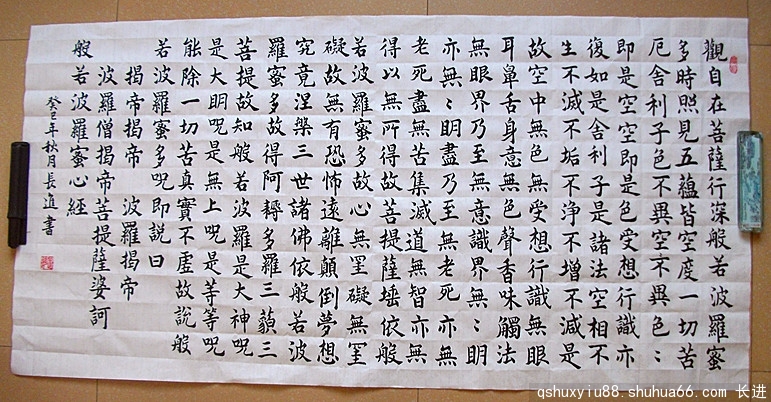 觀自在菩薩行深般若波羅蜜
多時照見五蘊皆空度一切苦
厄舍利子色不異空不異色〻
即是空空即是色受想行識亦
復如是舍利子是諸法空相不
生不滅不垢不淨不增不減是
故空中無色無受想行識無眼
耳鼻舌身意無色聲香味觸法
無眼界乃至無意識界無〻明
亦無〻明盡乃至無老死亦無
老死盡無苦集滅道無智亦無
得以無所得故菩提薩埵依般
若波羅蜜多故心無罣礙無罣
礙故無有恐怖遠離顛倒夢想
究竟涅槃三世諸佛依般若波
羅蜜多故得阿耨多羅三藐三
菩提故知般若波羅是大神呪
是大明呪是無上呪是等等呪
能除一切苦真實不虛故說般
若波羅蜜多呪即說曰
揭帝揭帝 波羅揭帝
波羅僧揭帝菩提薩婆訶
般若波羅蜜心經
癸巳年秋月長進書
qshuxyiu88.shuhua66.com 长进